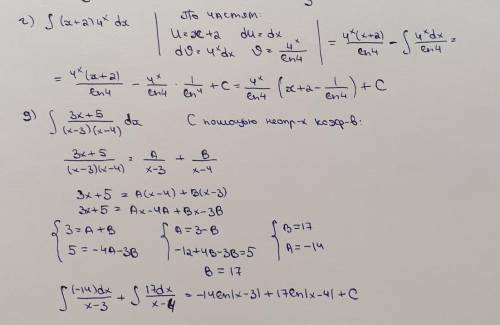 г) ∫ (x+2) 4ˣ dx | По частям: U = x+2 du = dx dϑ = 4ˣdx ϑ = 4ˣ/ln4 | = 4ˣ(x+2)/ln4 - ∫ 4ˣdx/ln4 =
= 4ˣ(x+2)/ln4 - 4ˣ/ln4 · 1/ln4 + C = 4ˣ/ln4 (x+2 - 1/ln4) + C
g) ∫ 3x+5/(x-3)(x-4) dx С помощью неопр-х коэф-в:
3x+5/(x-3)(x-4) = A/x-3 + B/x-4
3x+5 = A(x-4) + B(x-3)
3x+5 = Ax-4A + Bx-3B
{ 3 = A+B { A = 3-B { B = 17
5 = -4A-3B -12+4B-3B=5 A = -14
B = 17
∫ (-14)dx/x-3 + ∫ 17dx/x-4 = -14ln|x-3| + 17ln|x-4| + C